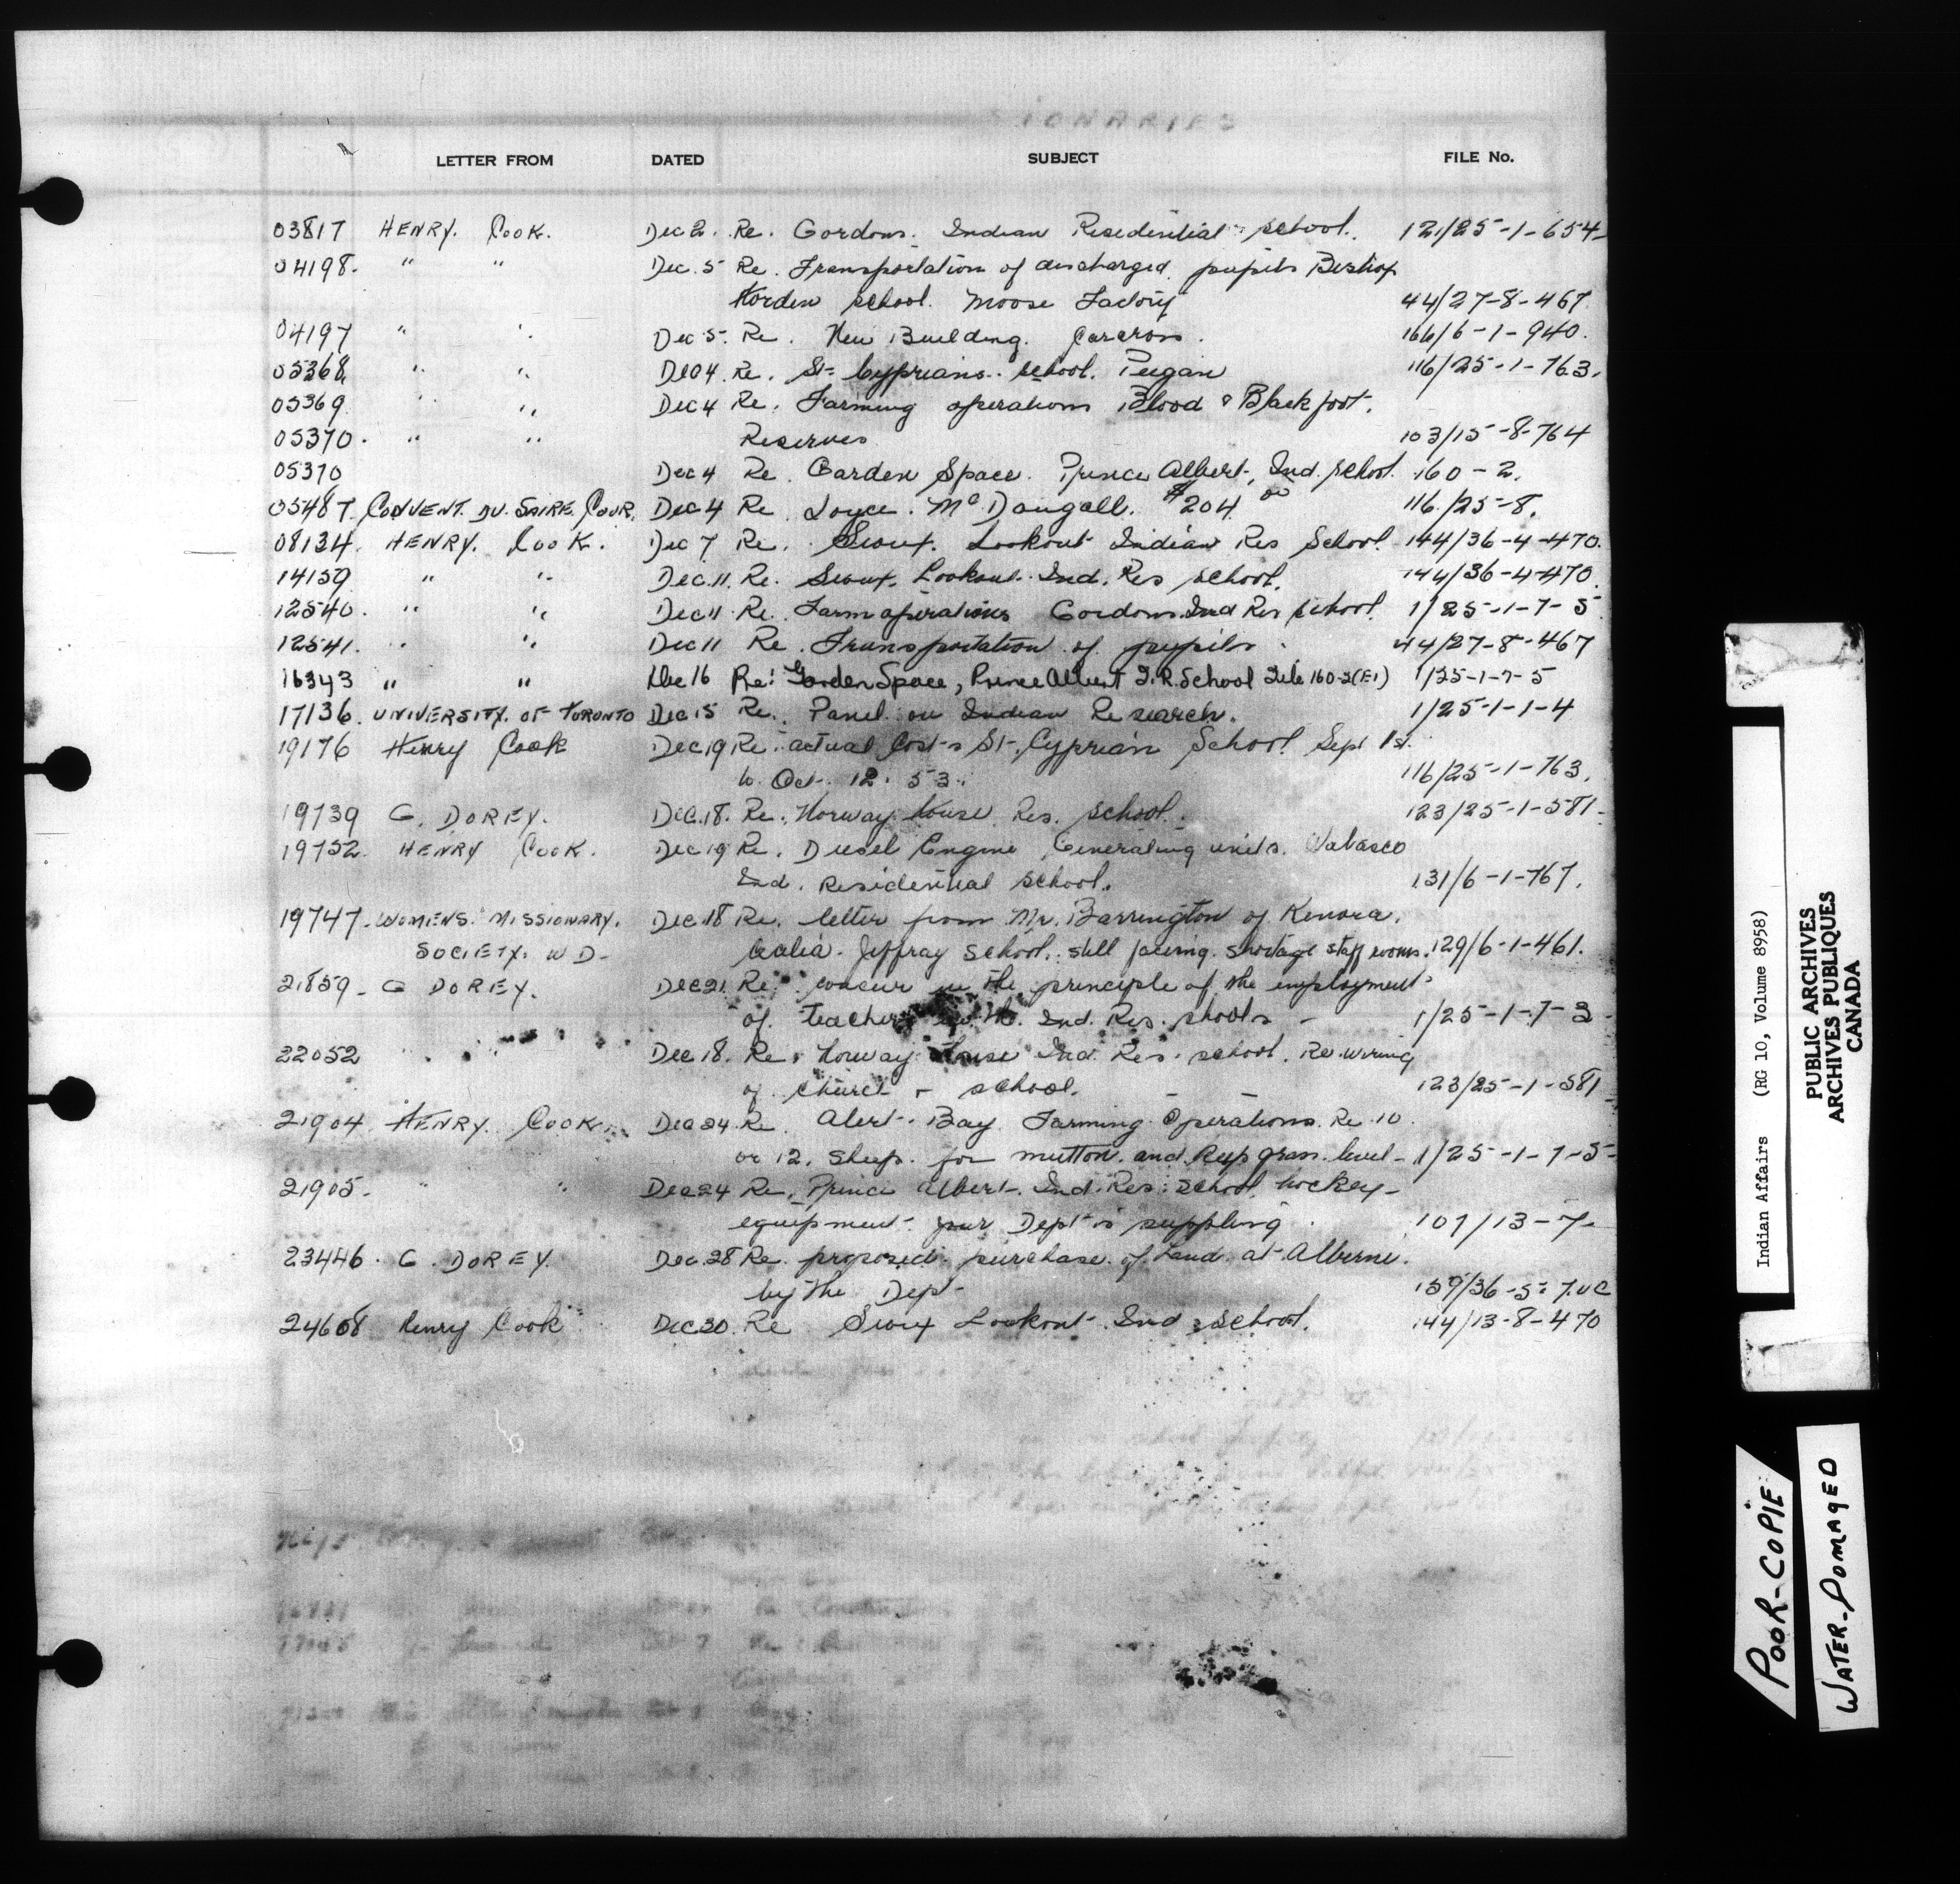 IONARIES
LETTER FROM DATED SUBJECT FILE No.
03817 HENRY. COOK. Dec 2. Re. Gordons. Indian Residential school. 121/25-1-654-
04198. " " Dec. 5 Re. Transportation of discharged pupils Bishop
Horden school. Moose Factory 44/27-8-467.
04197 " " Dec 5. Re. New Building. Carcross. 166/6-1-940.
05368. " " Dec 4. Re. St. Cyprians. school. Peigan 116/25-1-763.
05369 " " Dec 4 Re. Farming operations Blood & Blackfoot.
05370. " " Reserves 103/15-8-764
05370 Dec 4 Re. Garden Space. Prince Albert, Ind. school. 160-2.
05487. CONVENT. DU. SAIRE. COUR. Dec 4 Re. Joyce. McDougall. $204.00 116/25-8.
08134. HENRY. COOK. Dec 7 Re. Sioux. Lookout Indian Res School. 144/36-4-470.
14159 " " Dec. 11. Re. Sioux. Lookout. Ind. Res school. 144/36-4-470.
12540. " " Dec 11. Re. Farm operations Gordons. Ind Res school. 1/25-1-7-5
12541. " " Dec 11 Re. Transportation of pupils. 44/27-8-467
16343 " " Dec 16 Re: Garden Space, Prince Albert I.R. School File 160-2(E1) 1/25-1-7-5
17136. UNIVERSITY. OF TORONTO Dec 15 Re. Panel on Indian Research. 1/25-1-1-4
19176 Henry Cook Dec 19 Re. actual Costs St. Cyprian School Sept 1st.
to Oct. 12. 53. 116/25-1-763.
19739 G. DOREY. Dec. 18. Re. Norway House Res. school. 123/25-1-581-
19752. HENRY COOK. Dec 19 Re. Diesel Engine Generating units. Wabasco
Ind. Residential school. 131/6-1-767.
19747. WOMENS. MISSIONARY. Dec. 18 Re. letter from Mr. Barrington of Kenora.
SOCIETY. W D- Cecilia. Jeffray school. still facing. shortage staff rooms. 129/6-1-461.
21859- G DOREY. Dec 21. Re. concur in the principle of the employment
of teachers Ind. Res. shools - 1/25-1-7-3-
22052 " " Dec 18. Re. Norway House Ind. Res. school. Re wiring
of Church & school. - - 123/25-1-581-
21904. HENRY. COOK. Dec 24. Re. Alert. Bay. Farming. Operations. Re. 10
or 12. sheep. for mutton. and keep grass level- 1/25-1-7-5-
21905. " " Dec 24 Re. Prince Albert. Ind. Res. school. hockey-
equipment your Dept is suppling. 107/13-7-
23446. G. DOREY. Dec. 28 Re. proposed purchase of Land at Alberni.
by the Dept- 159/36-5-7.UC
24608 Henry Cook Dec 30. Re Sioux Lookout Ind School. 144/13-8-470
Indian Affairs (RG 10, Volume 8958)
PUBLIC ARCHIVES
ARCHIVES PUBLIQUES
CANADA
POOR-COPIE
WATER-DOMAGED